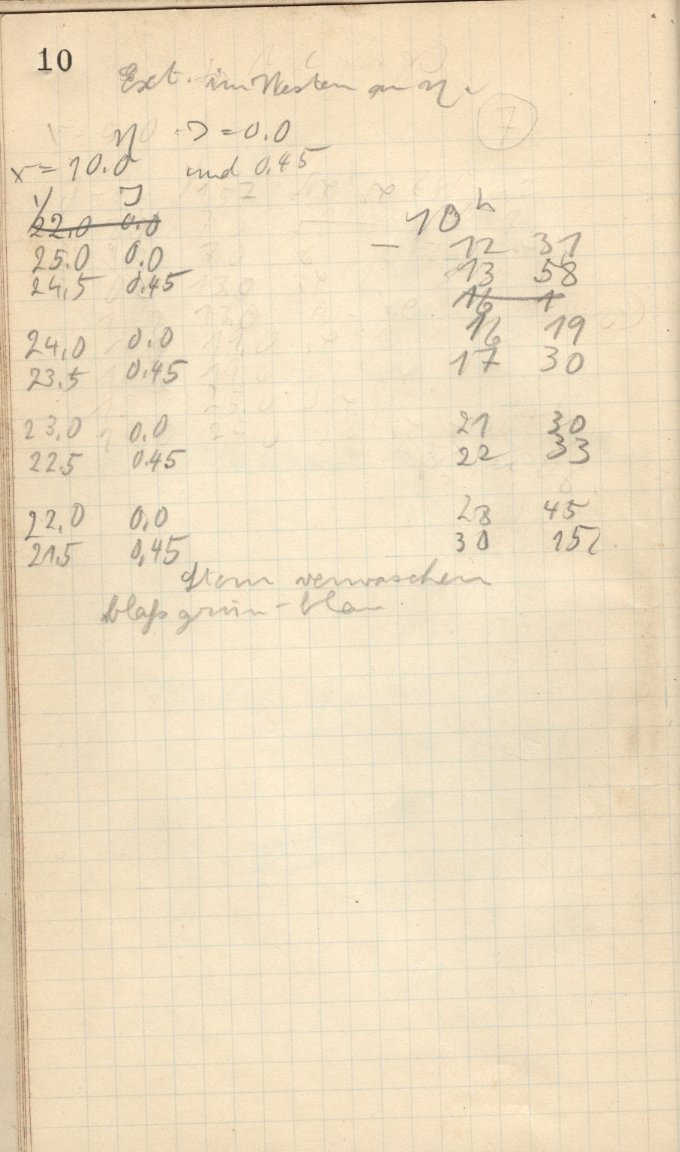 10
Ext. im Westen an η.
7
η J = 0.0
x = 10.0 und 0.45
y J
22.0 0.0
10 h
25.0 0.0 12 31
24,5 0.45 13 58
16 1
24,0 0.0 16 19
23.5 0.45 17 30
23,0 0.0 21 30
22.5 0.45 22 33
22,0 0,0 28 45
21,5 0,45 30 15
Stern verwaschen
blaß grün-blau